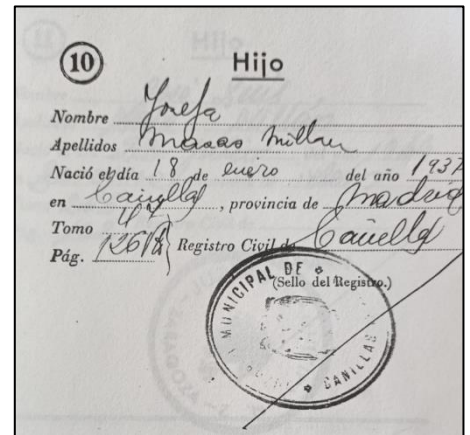 10
Hijo
Nombre Josefa
Apellidos Masas Millan
Nació el día 18 de enero del año 1937
en Canillas, provincia de Madrid
Tomo 47
Pág. Registro Civil de Canillas
(Sello del Registro.)
MUNICIPAL DE
CANILLAS